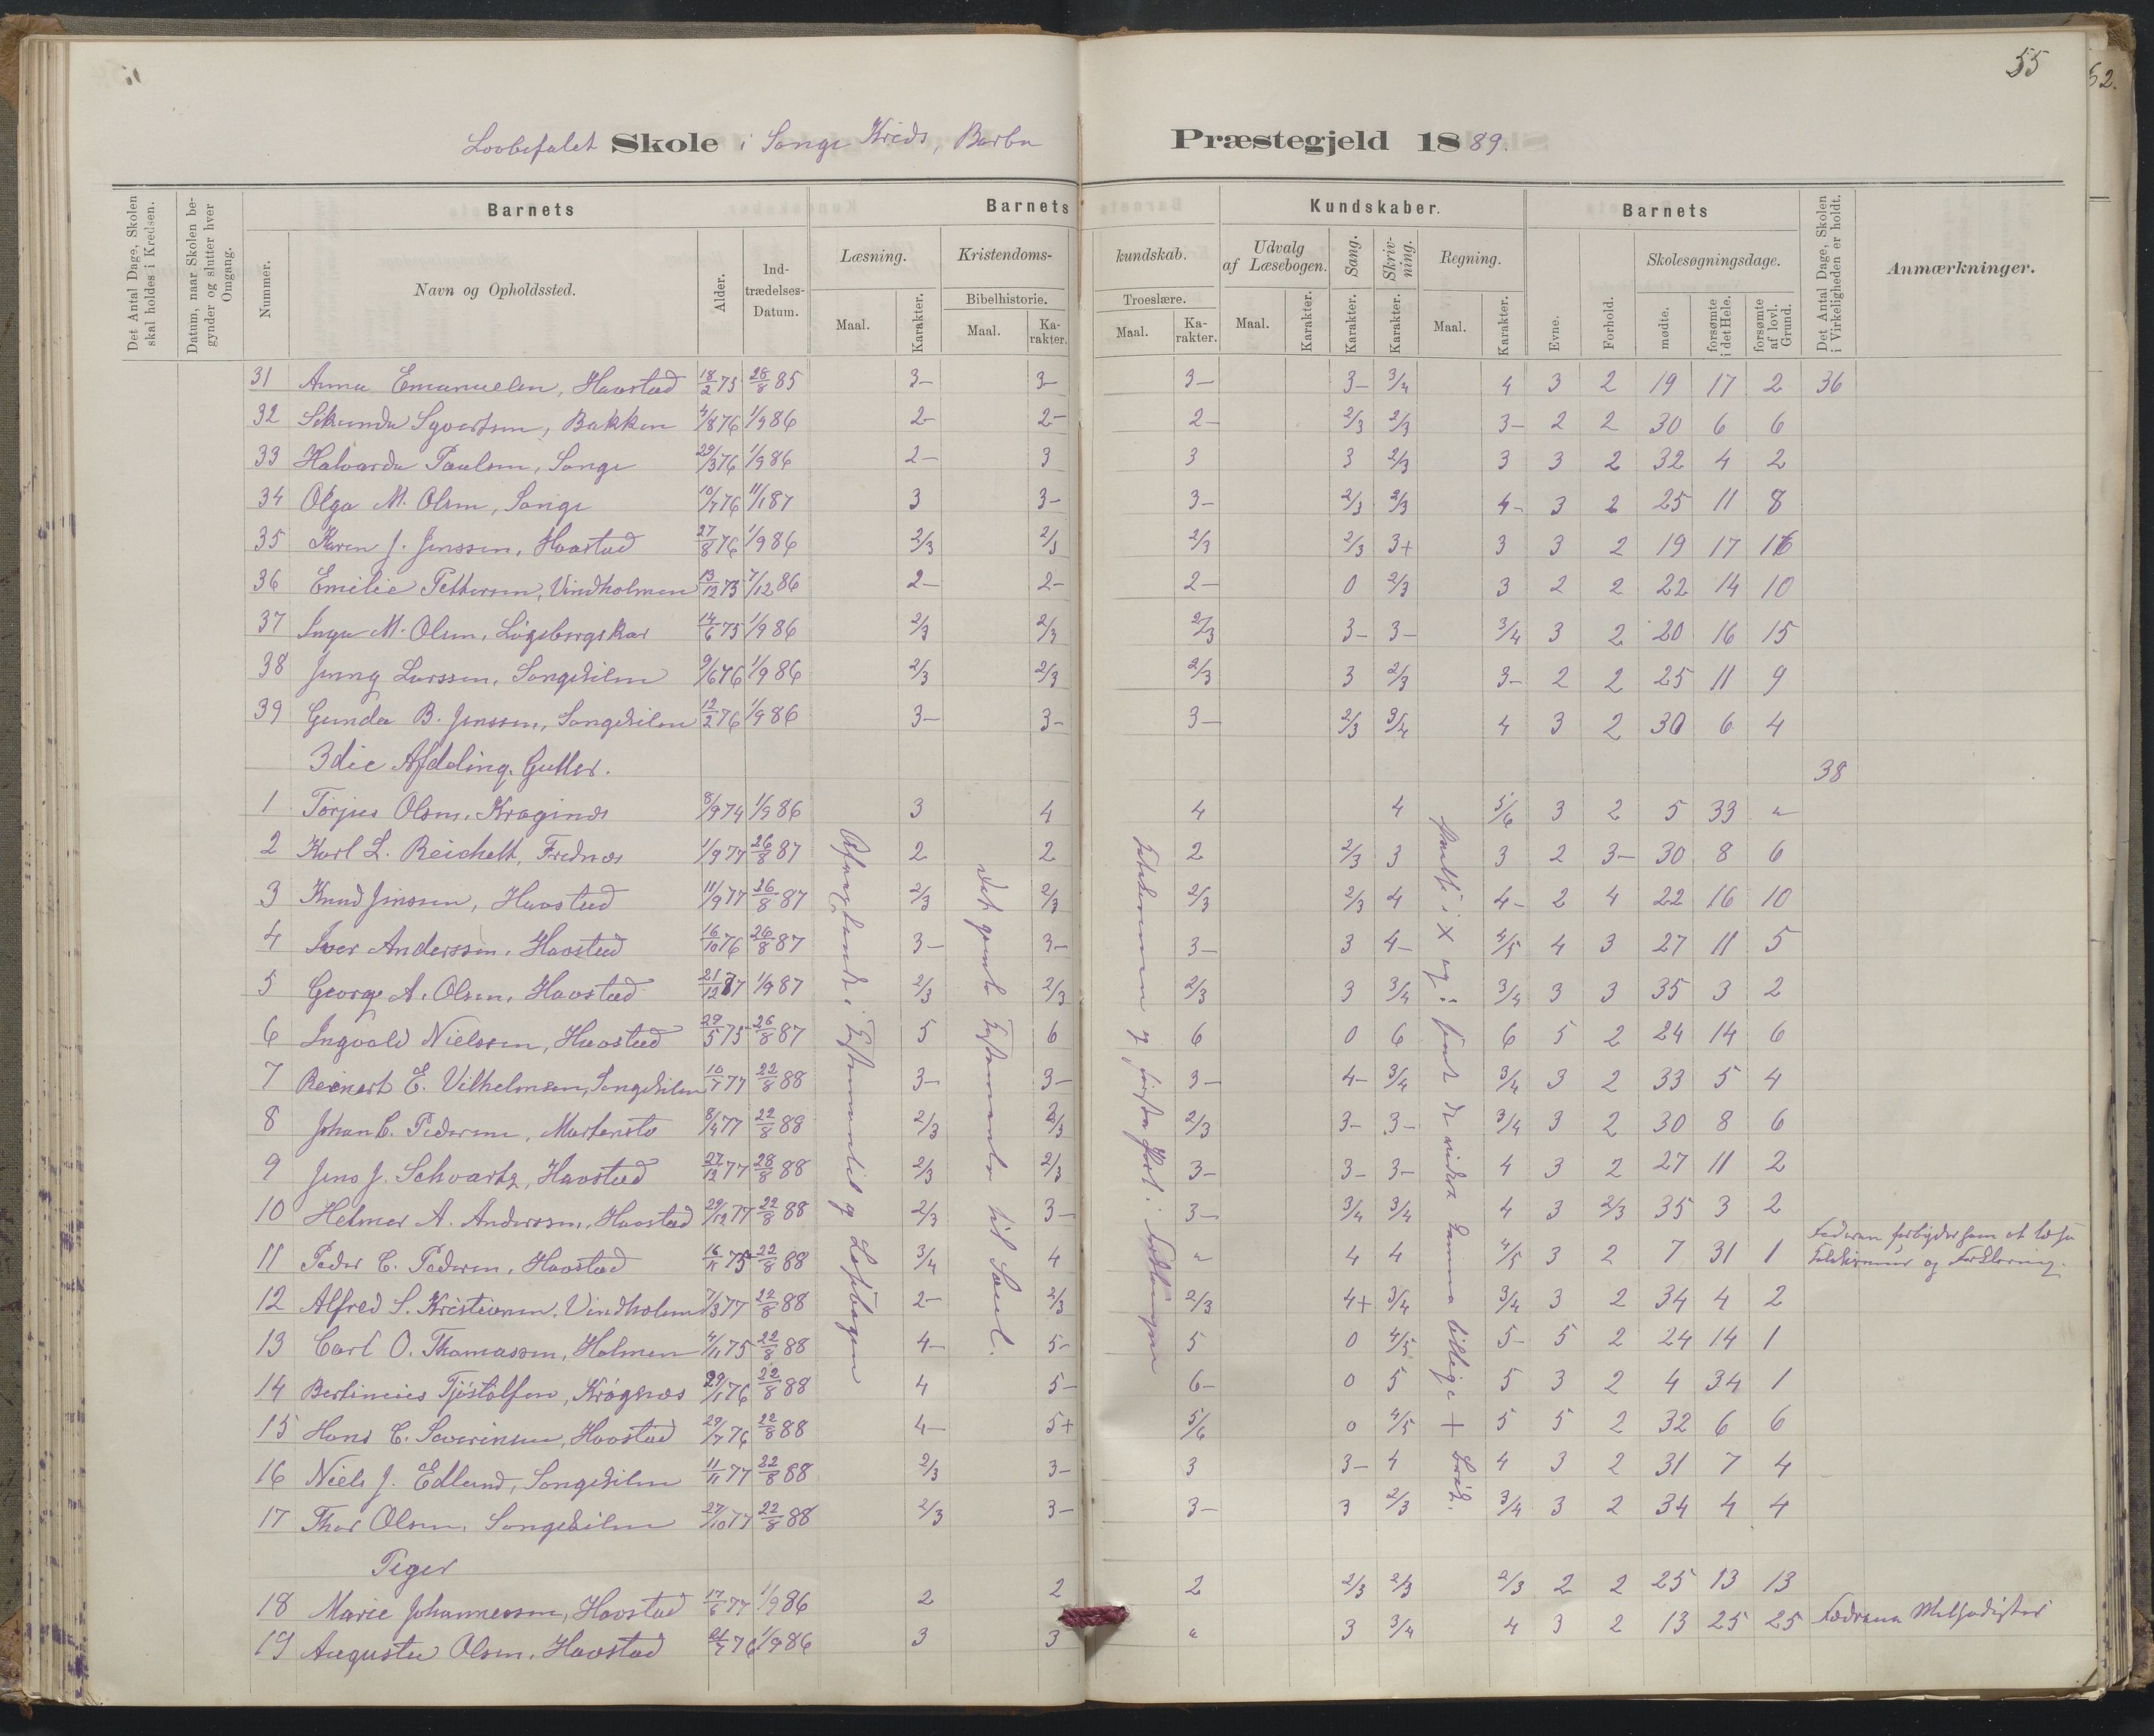 55
52.
Lovbefalet Skole i Songe Kreds, Barbu Præstegjeld 1889.
Det Antal Dage, Skolen skal holdes i Kredsen.
Datum, naar Skolen begynder og slutter hver Omgang.
Barnets
Nummer.
Navn og Opholdssted.
Alder.
Indtrædelses-Datum.
Barnets Kundskaber.
Læsning.
Maal.
Karakter.
Kristendomskundskab.
Bibelhistorie.
Maal.
Karakter.
Troeslære.
Maal.
Karakter.
Udvalg af Læsebogen.
Maal.
Karakter.
Sang.
Karakter.
Skrivning.
Karakter.
Regning.
Maal.
Karakter.
Barnets
Evne.
Forhold.
Skolesøgningsdage.
mødte.
forsømte i det Hele.
forsømte af lovl. Grund.
Det Antal Dage, Skolen i Virkeligheden er holdt.
Anmærkninger.
31 Anna Emanuelsen, Havstad 18/2 75 28/8 85 3- 3- 3- 3- 3/4 4 3 2 19 17 2 36
32 Sekunda Syvertsen, Bakken 4/8 76 1/9 86 2- 2- 2- 2/3 2/3 3- 2 2 30 6 6
33 Halvarda Paulsen, Songe 29/3 76 1/9 86 2- 3 3 3 2/3 3 3 2 32 4 2
34 Olga M. Olsen, Songe 10/7 76 11/1 87 3 3- 3- 2/3 2/3 4- 3 2 25 11 8
35 Karen J. Jenssen, Havstad 27/8 76 1/9 86 2/3 2/3 2/3 2/3 3+ 3 3 2 19 17 16
36 Emilie Pettersen, Vindholmen 13/12 73 7/12 86 2- 2- 2- 0 2/3 3 2 2 22 14 10
37 Inga M. Olsen, Løgebergskar 14/6 75 1/9 86 2/3 2/3 2/3 3- 3- 3/4 3 2 20 16 15
38 Jenny Larssen, Songekilen 9/6 76 1/9 86 2/3 2/3 2/3 3 2/3 3- 2 2 25 11 9
39 Gunda B. Jenssen, Songekilen 12/2 76 1/9 86 3- 3- 3- 2/3 3/4 4 3 2 30 6 4
3die Afdeling. Gutter. 38
1 Torjus Olsen, Kragenæs 8/9 74 1/9 86 3 4 4 4 5/6 3 2 5 33 "
2 Karl L. Reichelt, Frednæs 1/9 77 26/8 87 2 2 2 2/3 3 3 2 3- 30 8 6
3 Knud Jenssen, Havstad 11/9 77 26/8 87 2/3 2/3 2/3 2/3 4 4- 2 4 22 16 10
4 Iver Anderssen, Havstad 16/10 76 26/8 87 3- 3- 3- 3 4- 4/5 4 3 27 11 5
5 Georg A. Olsen, Havstad 21/12 77 1/9 87 2/3 2/3 2/3 3 3/4 3/4 3 3 35 3 2
6 Ingvald Nielssen, Havstad 29/5 75 26/8 87 5 6 6 0 6 6 5 2 24 14 6
7 Reinert E. Vilhelmsen, Songekilen 10/7 77 22/8 88 3- 3- 3- 4- 3/4 3/4 3 2 33 5 4
8 Johan C. Pedersen, Martensto 8/4 77 22/8 88 2/3 2/3 2/3 3- 3- 3/4 3 2 30 8 6
9 Jens J. Schvartz, Havstad 27/12 77 28/8 88 2/3 2/3 3- 3- 3- 4 3 2 27 11 2
10 Helmer A. Anderssen, Havstad 29/12 77 22/8 88 2/3 3- 3- 3/4 3/4 4 3 2/3 35 3 2
11 Peder C. Pedersen, Havstad 16/11 75 22/8 88 3/4 4 " 4 4 4/5 3 2 7 31 1 Faderen forbyder ham at læse Katekismus og Forklaring.
12 Alfred S. Kristiansen, Vindholmen 7/3 77 22/8 88 2- 2/3 2/3 4+ 3/4 3/4 3 2 34 4 2
13 Carl O. Thomassen, Holmen 4/11 75 22/8 88 4- 5- 5 0 4/5 5- 5 2 24 14 1
14 Bertinius Tjøstolfsen, Krøgenæs 29/1 76 22/8 88 4 5- 6- 0 5 5 3 2 4 34 1
15 Hans C. Severinsen, Havstad 29/7 76 22/8 88 4- 5+ 5/6 0 4/5 5 5 2 32 6 6
16 Niels J. Edlund, Songekilen 11/11 77 22/8 88 2/3 3- 3 3- 4 4 3 2 31 7 4
17 Thor Olsen, Songekilen 27/10 77 22/8 88 2/3 3- 3- 3 2/3 3/4 3 2 34 4 4
Piger
18 Marie Johannessen, Havstad 17/6 77 1/9 86 2 2 2 2/3 2/3 2/3 2 2 25 13 13
19 Augusta Olsen, Havstad 21/7 76 1/9 86 3 3 " 3 3/4 4 3 2 13 25 25 Fædrene Methodister
i Testamentet og Læsebogen
Det gamle Testamente til Saul.
i × og : samt de andre samme +